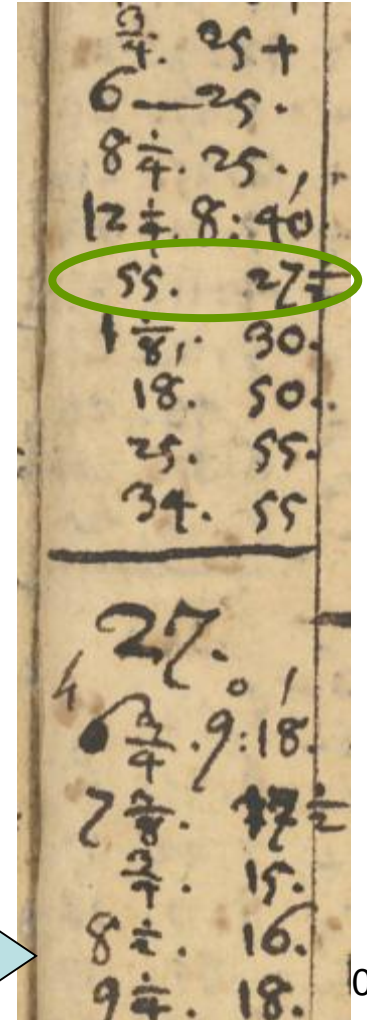 3/4. 25 +
6 — 25.
8 1/4. 25.
12 1/4. 8: 40'
55. 27 1/2
1 1/8. 30.
18. 50.
25. 55.
34. 55
27.
h o '
6 3/4. 9:18.
7 3/8. 17 1/2
3/4. 15.
8 1/2. 16.
9 1/4. 18.